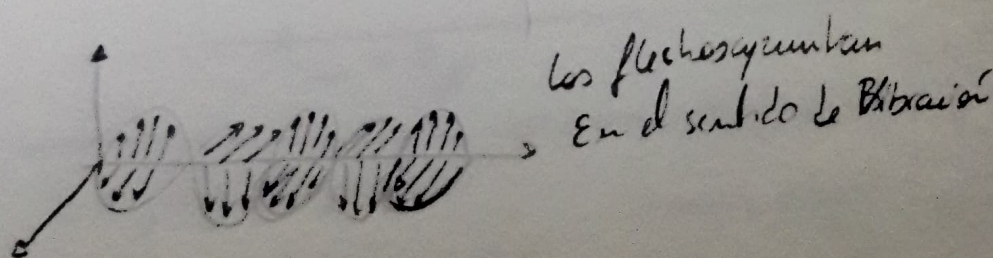 Las flechas apuntan
En el sentido de Bibración